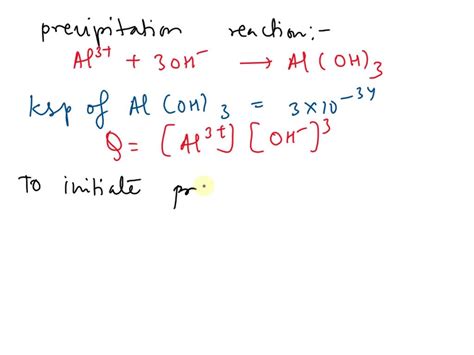 precipitation reaction:-
Al³⁺ + 3OH⁻ ⟶ Al(OH)₃
Ksp of Al(OH)₃ = 3×10⁻³⁴
Q = [Al³⁺][OH⁻]³
To initiate pr